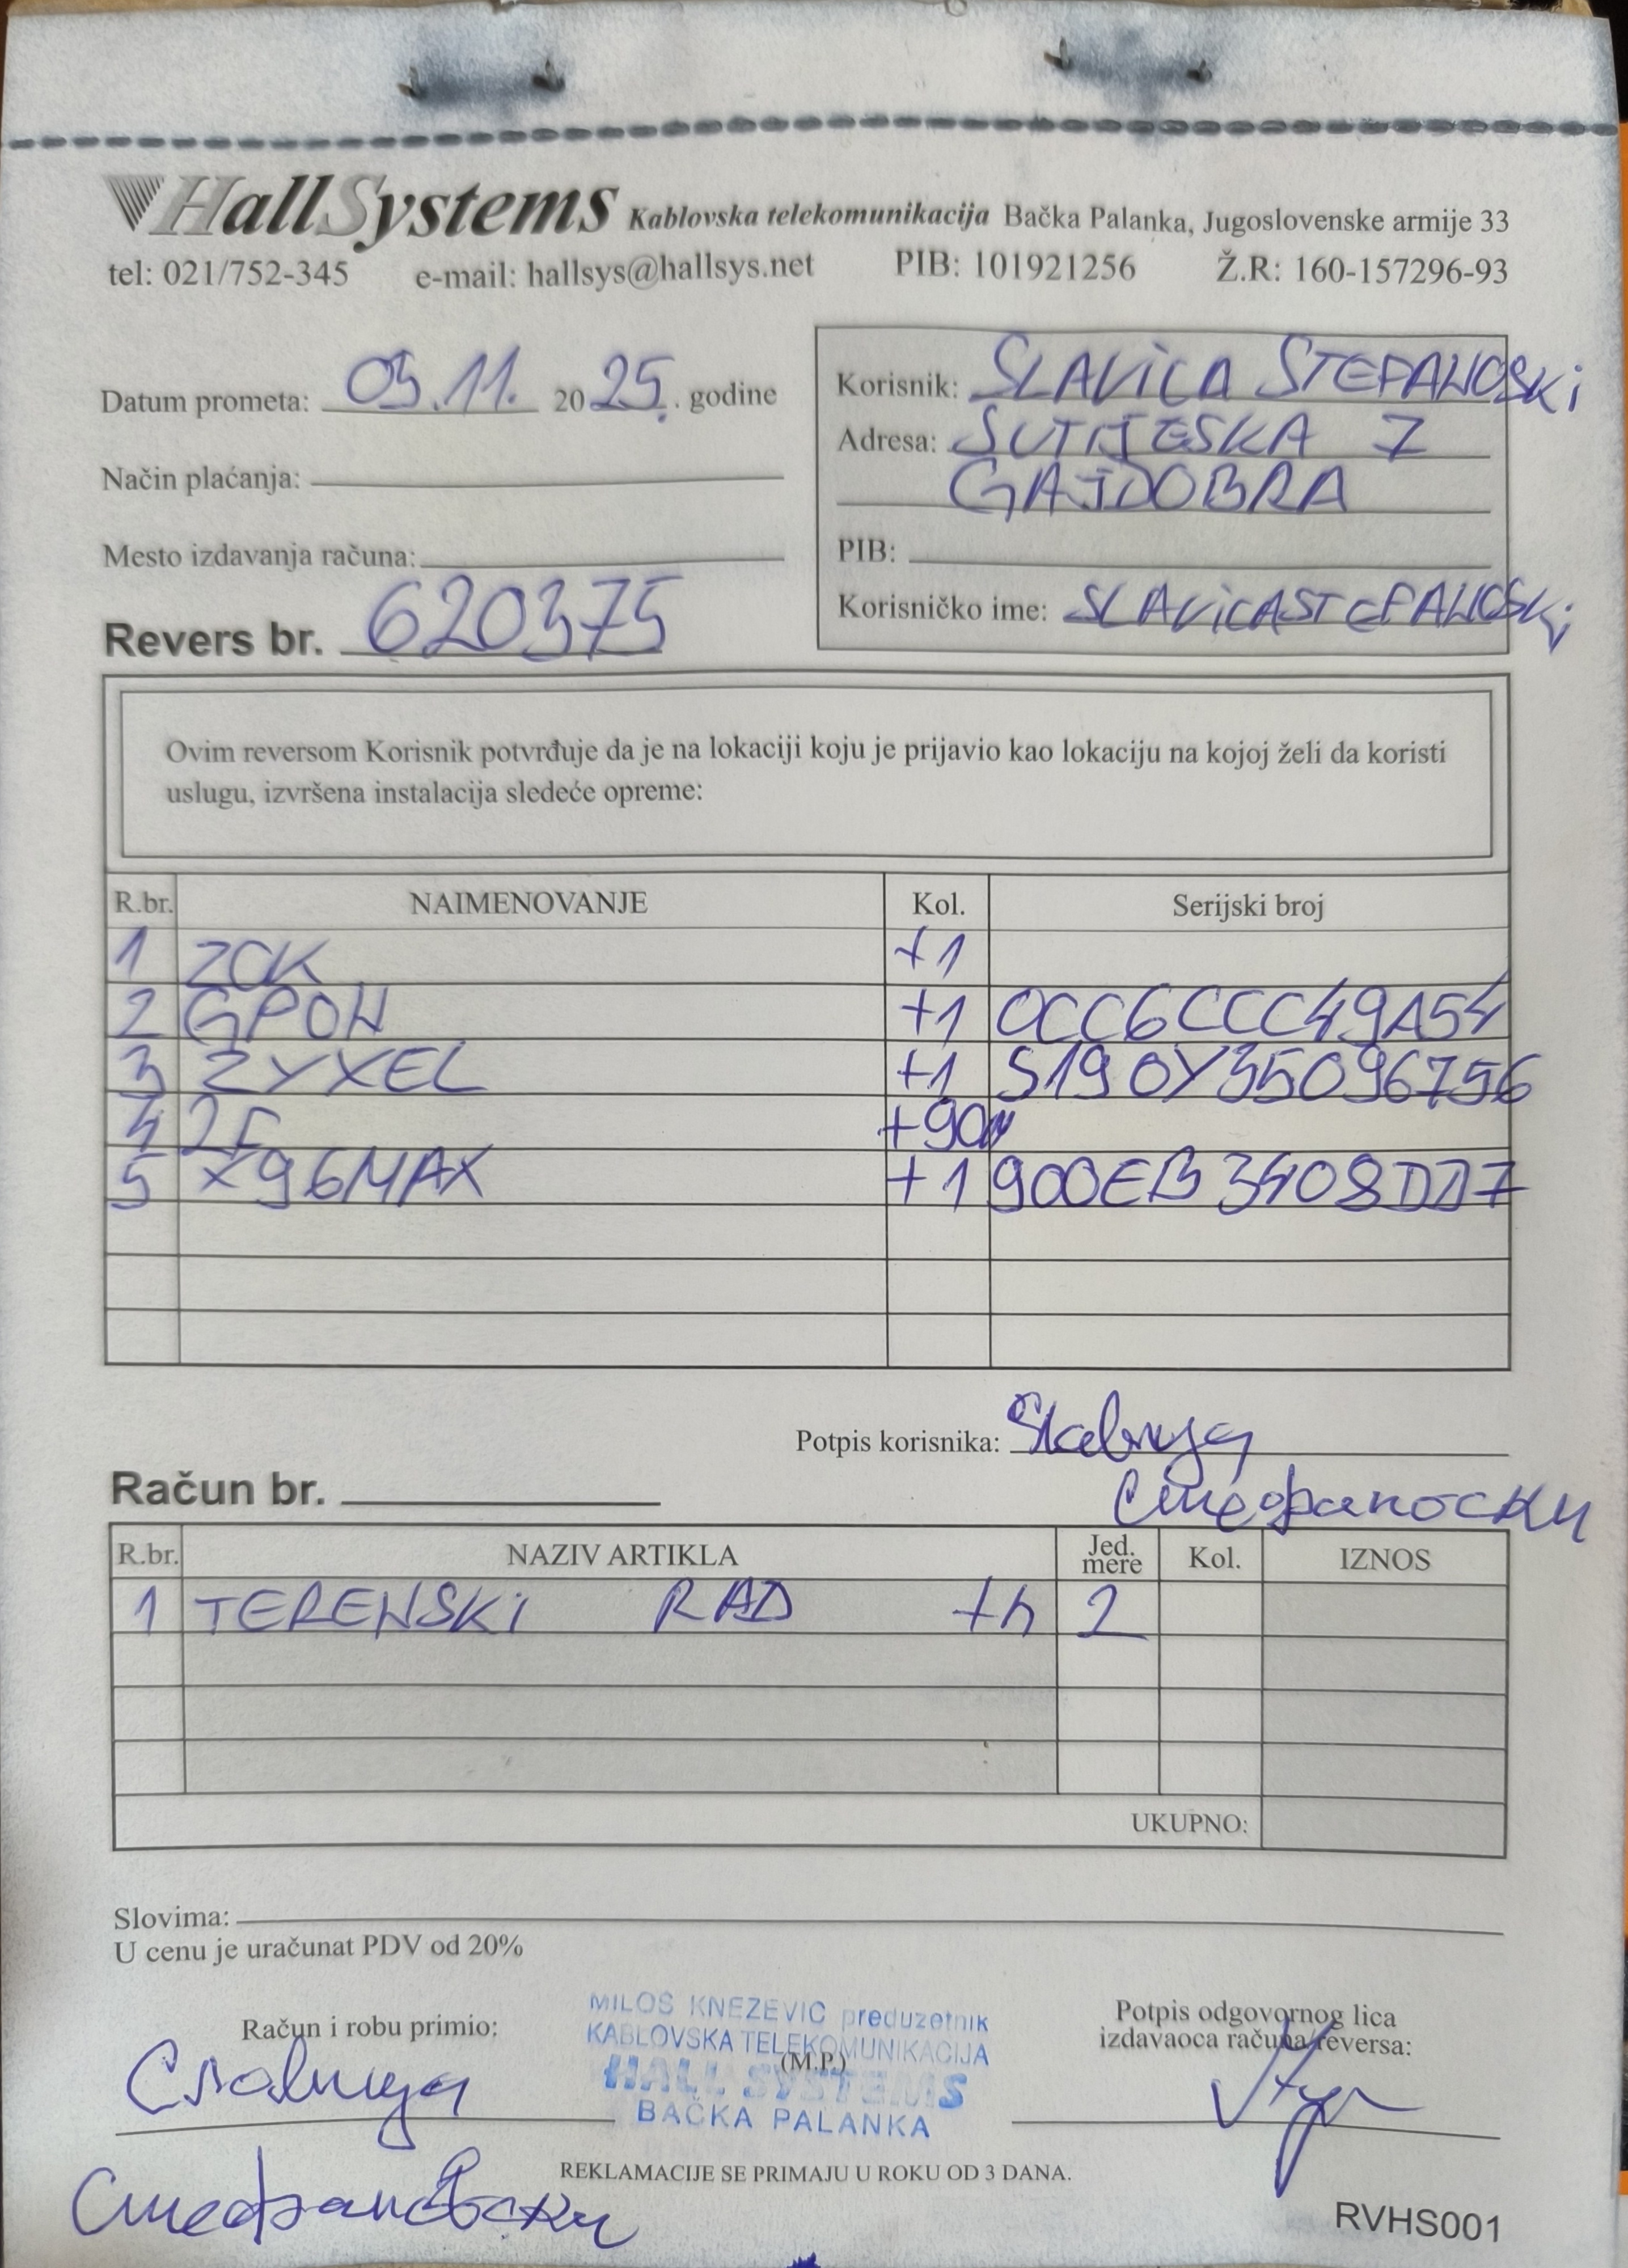 HallSystems Kablovska telekomunikacija Bačka Palanka, Jugoslovenske armije 33
tel: 021/752-345 e-mail: hallsys@hallsys.net PIB: 101921256 Ž.R: 160-157296-93
Datum prometa: 03.11. 2025. godine
Način plaćanja:
Mesto izdavanja računa:
Revers br. 620375
Korisnik: SLAViCA STEFANOSKi
Adresa: SUTJESKA 7
GAJDOBRA
PIB:
Korisničko ime: SLAViCASTEFANOSKi
Ovim reversom Korisnik potvrđuje da je na lokaciji koju je prijavio kao lokaciju na kojoj želi da koristi
uslugu, izvršena instalacija sledeće opreme:
R.br. NAIMENOVANJE Kol. Serijski broj
1 ZOK +1
2 GPON +1 0CC6CCC49A54
3 ZYXEL +1 S190Y35096756
4 2F +90m
5 X96MAX +1 900EB3408DD7
Potpis korisnika: Славица
Стефаноски
Račun br.
R.br. NAZIV ARTIKLA Jed. mere Kol. IZNOS
1 TERENSKi RAD +h 2
UKUPNO:
Slovima:
U cenu je uračunat PDV od 20%
Račun i robu primio:
Славица
Стефаноски
MILOS KNEZEVIC preduzetnik
KABLOVSKA TELEKOMUNIKACIJA
(M.P.)
HALL SYSTEMS
BAČKA PALANKA
Potpis odgovornog lica
izdavaoca računa/reversa:
REKLAMACIJE SE PRIMAJU U ROKU OD 3 DANA.
RVHS001